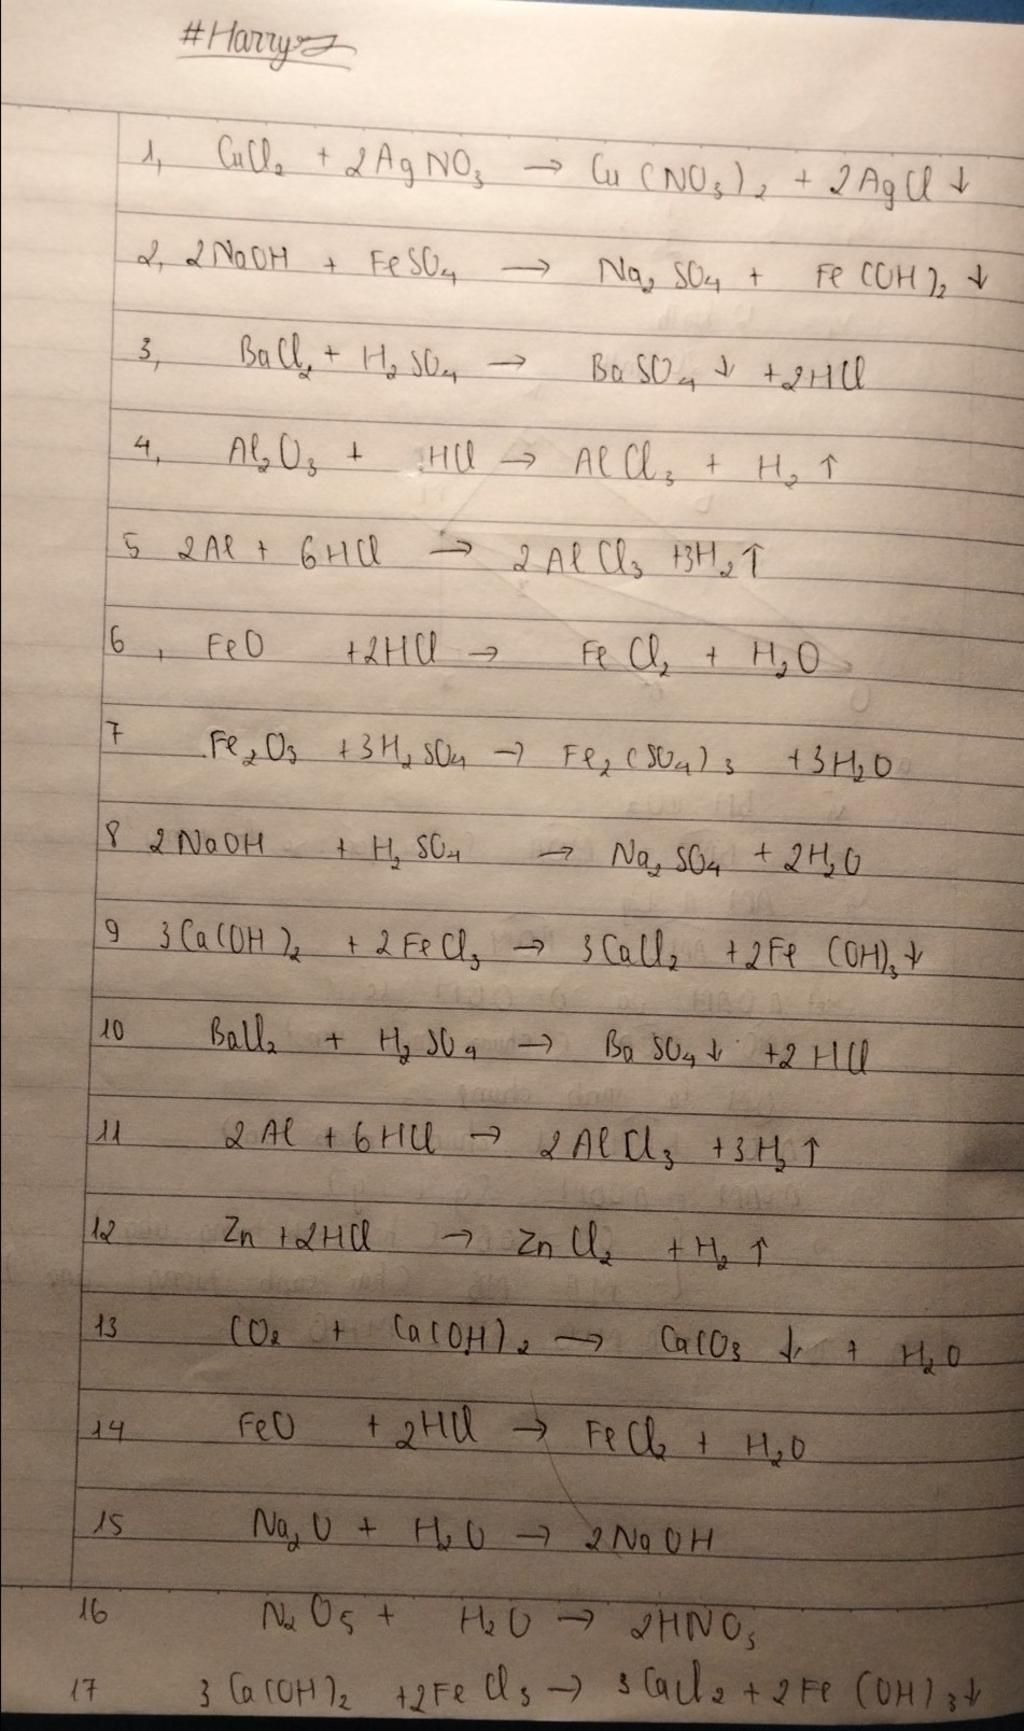 #Harry
1, CuCl₂ + 2AgNO₃ → Cu(NO₃)₂ + 2AgCl ↓
2, 2NaOH + FeSO₄ → Na₂SO₄ + Fe(OH)₂ ↓
3, BaCl₂ + H₂SO₄ → BaSO₄ ↓ + 2HCl
4, Al₂O₃ + HCl → AlCl₃ + H₂ ↑
5 2Al + 6HCl → 2AlCl₃ + 3H₂ ↑
6, FeO + 2HCl → FeCl₂ + H₂O
7 Fe₂O₃ + 3H₂SO₄ → Fe₂(SO₄)₃ + 3H₂O
8 2NaOH + H₂SO₄ → Na₂SO₄ + 2H₂O
9 3Ca(OH)₂ + 2FeCl₃ → 3CaCl₂ + 2Fe(OH)₃ ↓
10 BaCl₂ + H₂SO₄ → BaSO₄ ↓ + 2HCl
11 2Al + 6HCl → 2AlCl₃ + 3H₂ ↑
12 Zn + 2HCl → ZnCl₂ + H₂ ↑
13 CO₂ + Ca(OH)₂ → CaCO₃ ↓ + H₂O
14 FeO + 2HCl → FeCl₂ + H₂O
15 Na₂O + H₂O → 2NaOH
16 N₂O₅ + H₂O → 2HNO₃
17 3Ca(OH)₂ + 2FeCl₃ → 3CaCl₂ + 2Fe(OH)₃ ↓